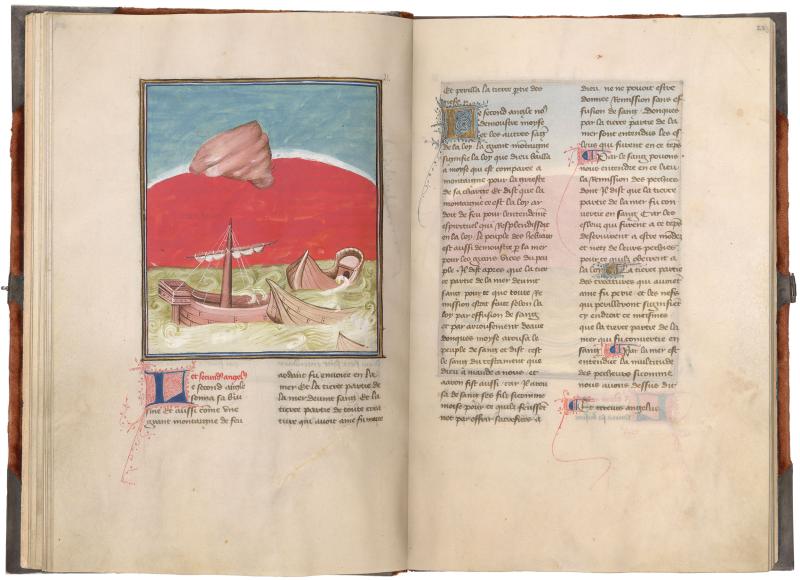 Et secund angelus
e second angle
sonna sa bui
sine Et aussi come une
grant montaigne de feu
ardant fu envoiee en la
mer Et la tierce partie de
la mer devint sang Et la
tierce partie de toute crea
ture qui avoit ame fu morte
Et perilla la tierce ptie des
nefs
Le second angle no9
demoustre moyse
et les autres sag
de la loy. la grant montaigne
signifie la loy que dieu bailla
a moyse qui est comparee a
montaigne pour la grieste
de sa charge Et dist que la
montaigne cest la loy ar
doit de feu pour lentendemt
espirituel qui resplendissoit
en la loy. le peuple des hebrieux
est aussi demoustre p la mer
pour les grans vices du peu
ple. Il dist apres que la tier
ce partie de la mer devint
sang pour ce que toute re
mission estoit faite selon la
loy par effusion de sang
et par arousement deaue
donques moyse arousa le
peuple de sang et dist cest
le sang du testament que
dieu a mande a nous. et
aaron fist aussi. car Il arou
sa de sang ses filz si comme
moyse pour ce quilz feissent
not par offrir sacrefices a
dieu. ne ne pouoit estre
donnee remission sans ef
fusion de sang. Donques
par la tierce partie de la
mer sont entendus les es
leus qui furent en ce teps
Par le sang pouons
nous entendre en ce lieu
la remission des pechies
dont Il dist que la tierce
partie de la mer fu con
vertie en sang Car les
esleus qui furent a ce teps
desservirent a estre mondez
et netz de leurs pechies
pour ce quilz obeirent a
la loy La tierce partie
des creatures qui avoient
ame fu perie. et les nefs
qui perillerent signifient
cy endroit ce meismes
que la tierce partie de la
mer qui fu convertie en
sang Par la mer est
entendue la multitude
des pecheurs si comme
nous avons dessus dit
Et tercius angelus